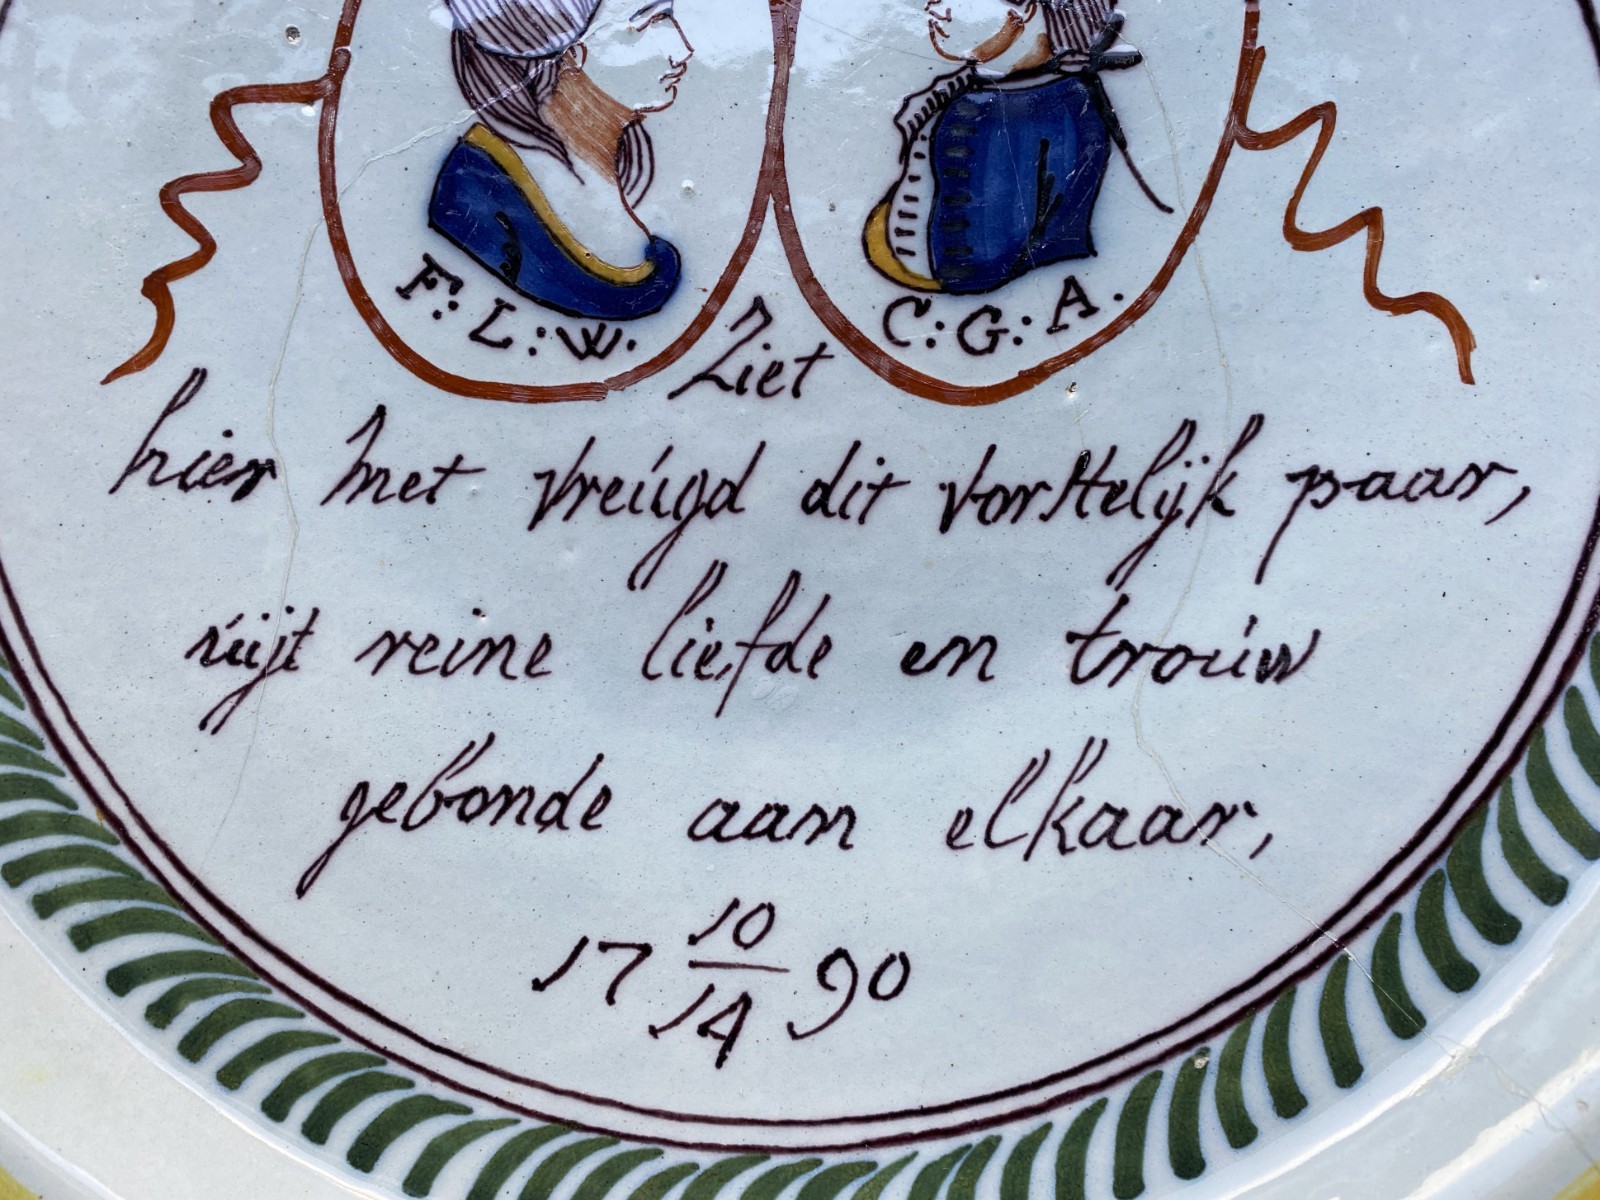 F: L: W.
C: G: A.
Ziet
hier met vreúgd dit vorstelijk paar,
úijt reine liefde en troúw
gebonde aan elkaar,
17 10/14 90